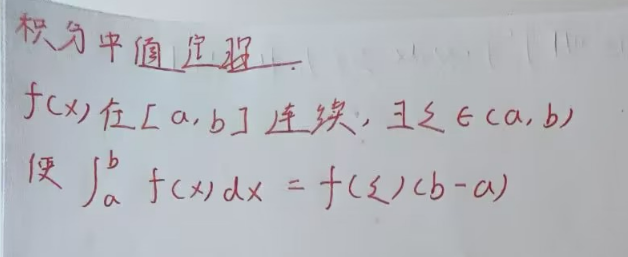 积分中值定理
f(x)在[a,b]连续,∃ξ∈(a,b)
使∫_a^b f(x)dx=f(ξ)(b-a)